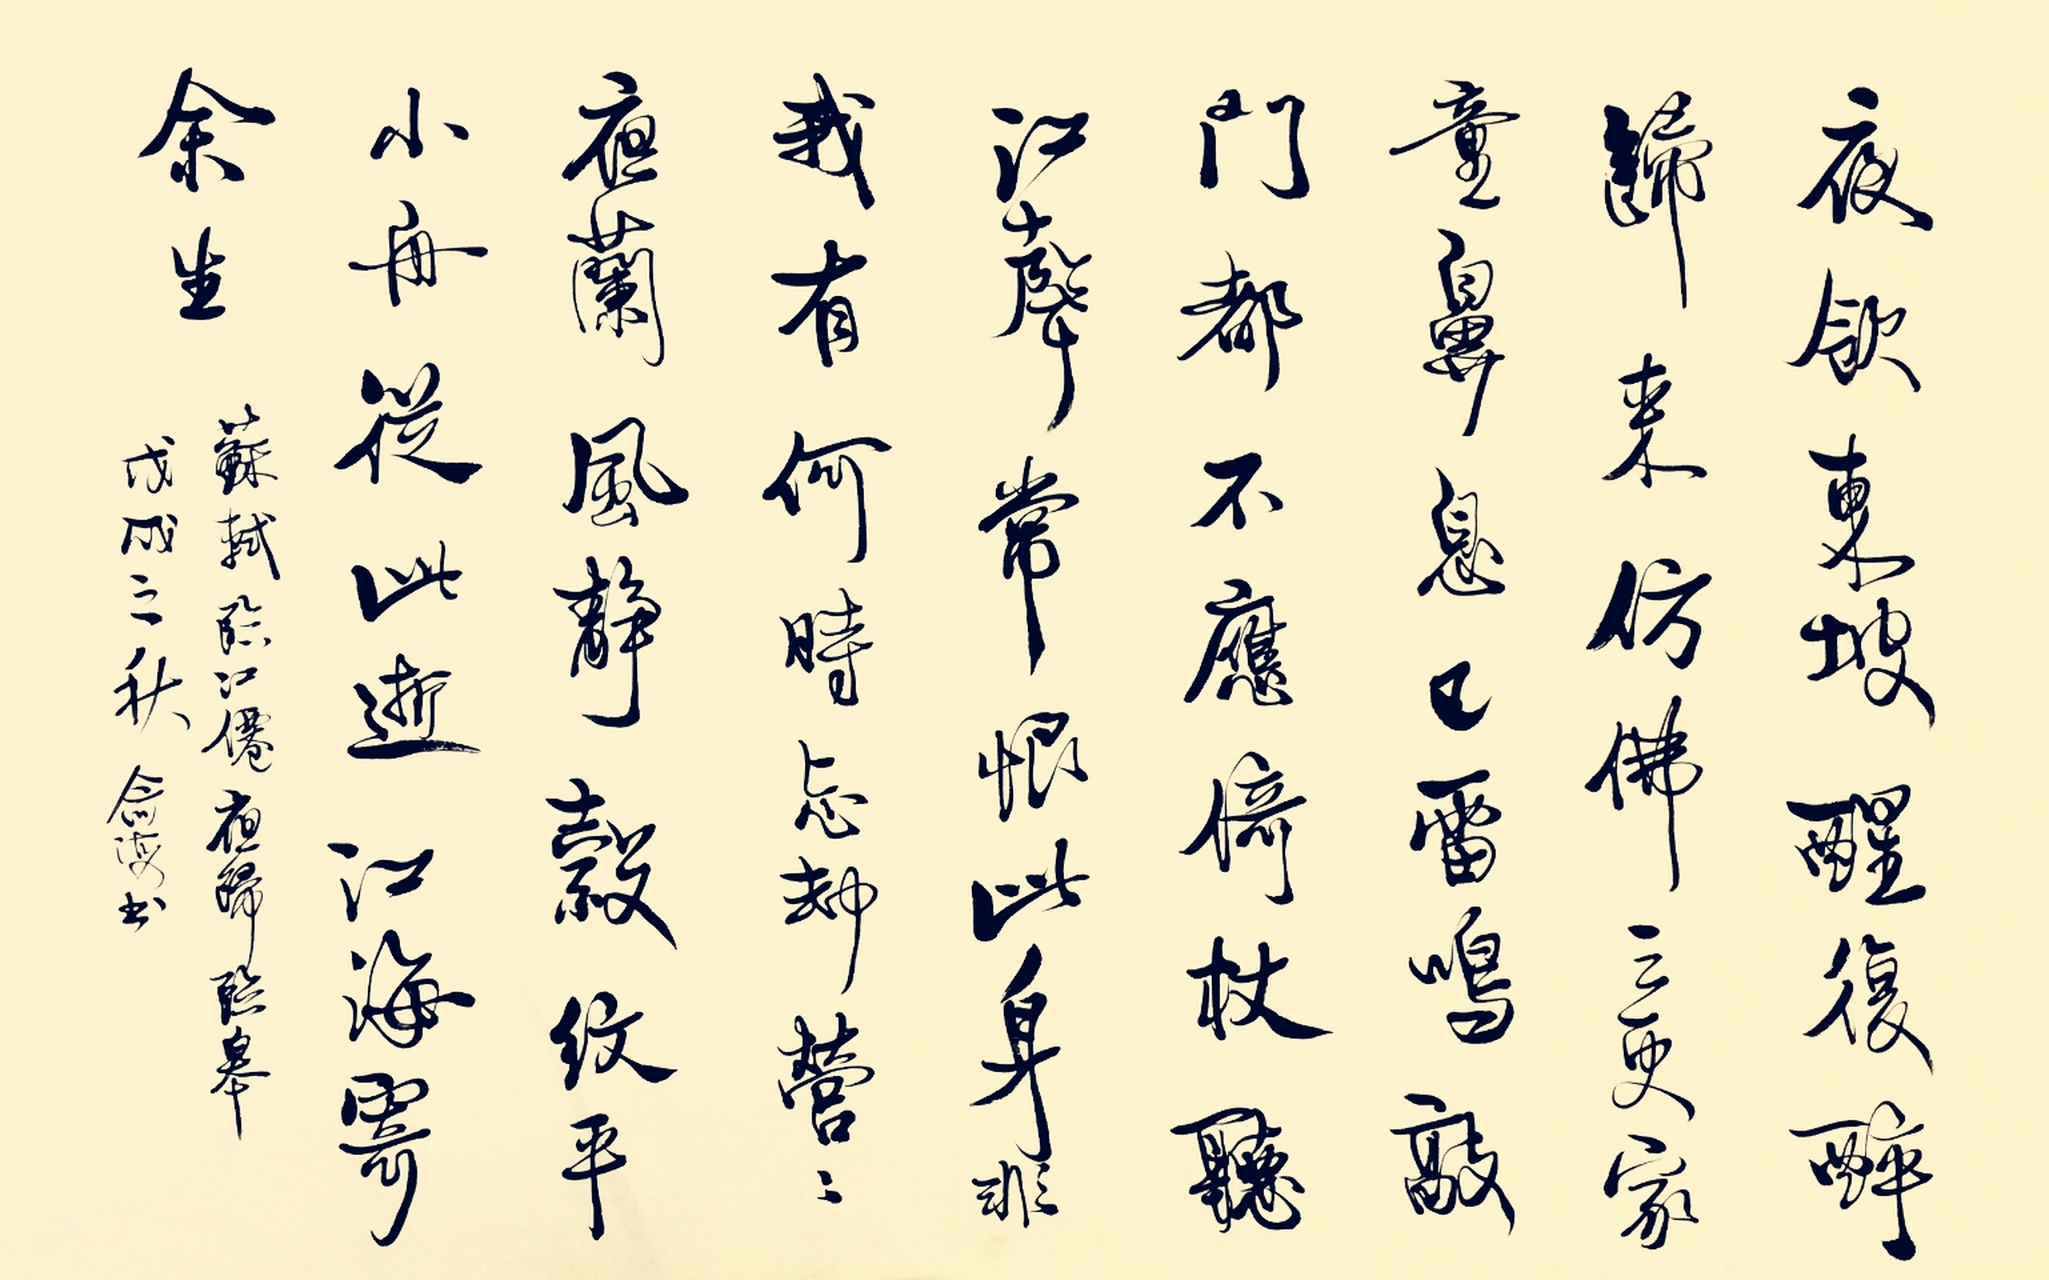 夜飲東坡醒復醉
歸来仿佛三更家
童鼻息已雷鳴敲
門都不應倚杖聽
江聲常恨此身非
我有何時忘却營〻
夜蘭風靜縠紋平
小舟從此逝江海寄
余生
蘇軾臨江僊夜歸臨皋
戊戌之秋